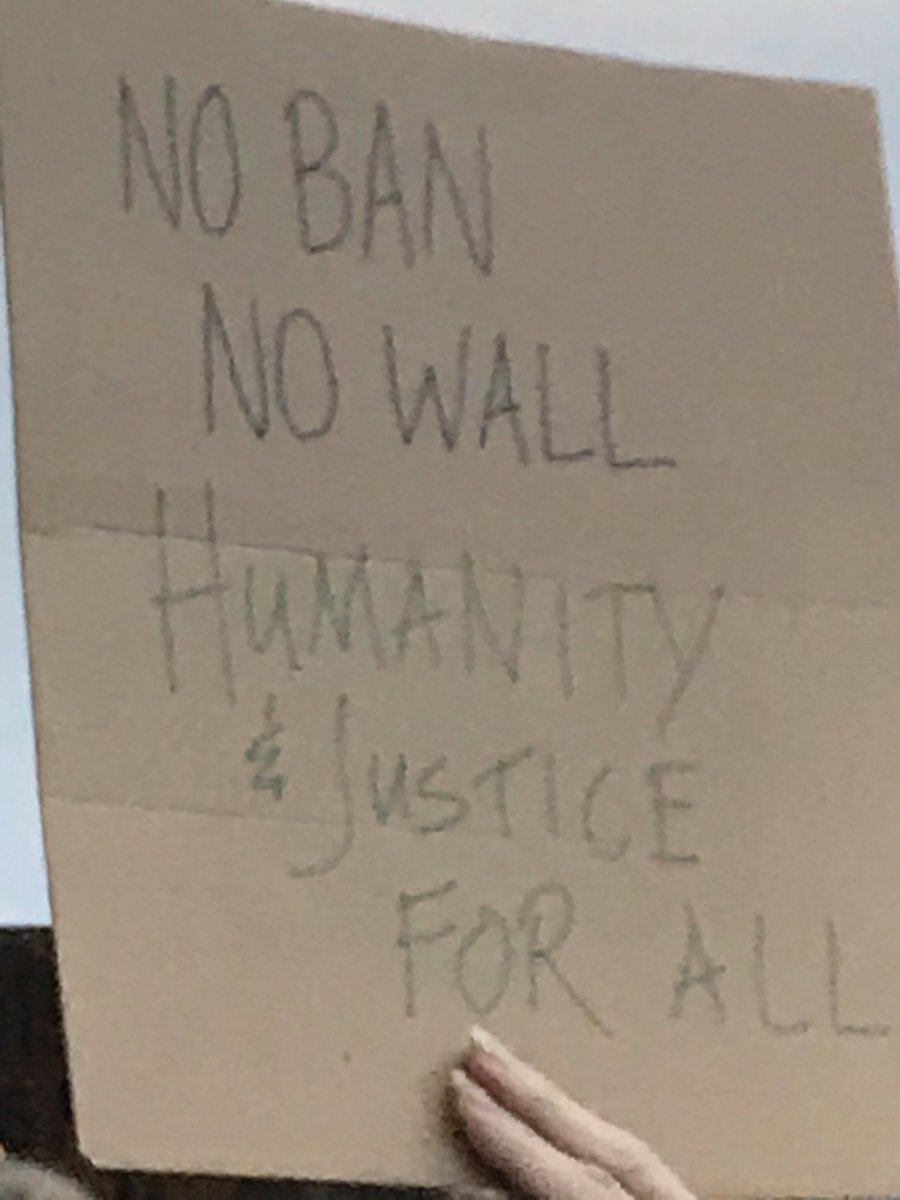 NO BAN
NO WALL
HUMANITY
& JUSTICE
FOR ALL